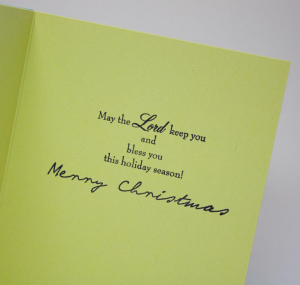 May the Lord keep you
and
bless you
this holiday season!
Merry Christmas